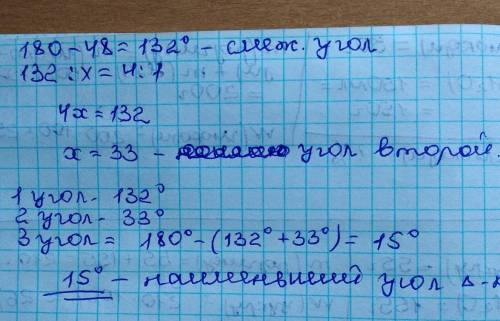 180-48=132° - смеж. угол
132:x=4:1
4x=132
x=33 - угол второй.
1 угол- 132°
2 угол- 33°
3 угол= 180°-(132°+33°)=15°
15° - наименьший угол Δ-